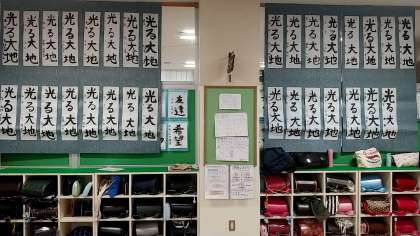 光る大地
光る大地
光る大地
光る大地
光る大地
光る大地
光る大地
光る大地
光る大地
光る大地
光る大地
光る大地
光る大地
光る大地
光る大地
光る大地
友達
希望
光る大地
光る大地
光る大地
光る大地
光る大地
光る大地
光る大地
光る大地
光る大地
光る大地
光る大地
光る大地
光る大地
光る大地
光る大地